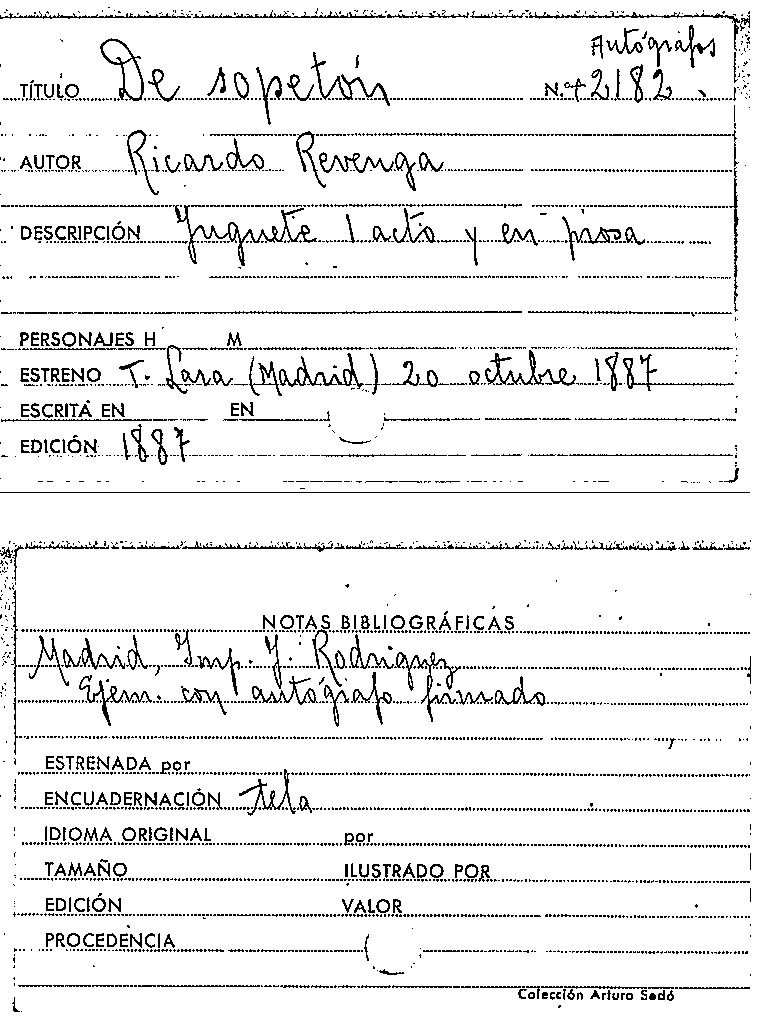 Autógrafos
TÍTULO De sopetón N.º 42182.
AUTOR Ricardo Revenga
DESCRIPCIÓN Juguete 1 acto y en prosa
PERSONAJES H M
ESTRENO T. Lara (Madrid) 20 octubre 1887
ESCRITA EN EN
EDICIÓN 1887
NOTAS BIBLIOGRÁFICAS
Madrid, Imp. J. Rodriguez
Ejem. con autógrafo firmado
ESTRENADA por
ENCUADERNACIÓN tela
IDIOMA ORIGINAL por
TAMAÑO ILUSTRADO POR
EDICIÓN VALOR
PROCEDENCIA
Colección Arturo Sedó